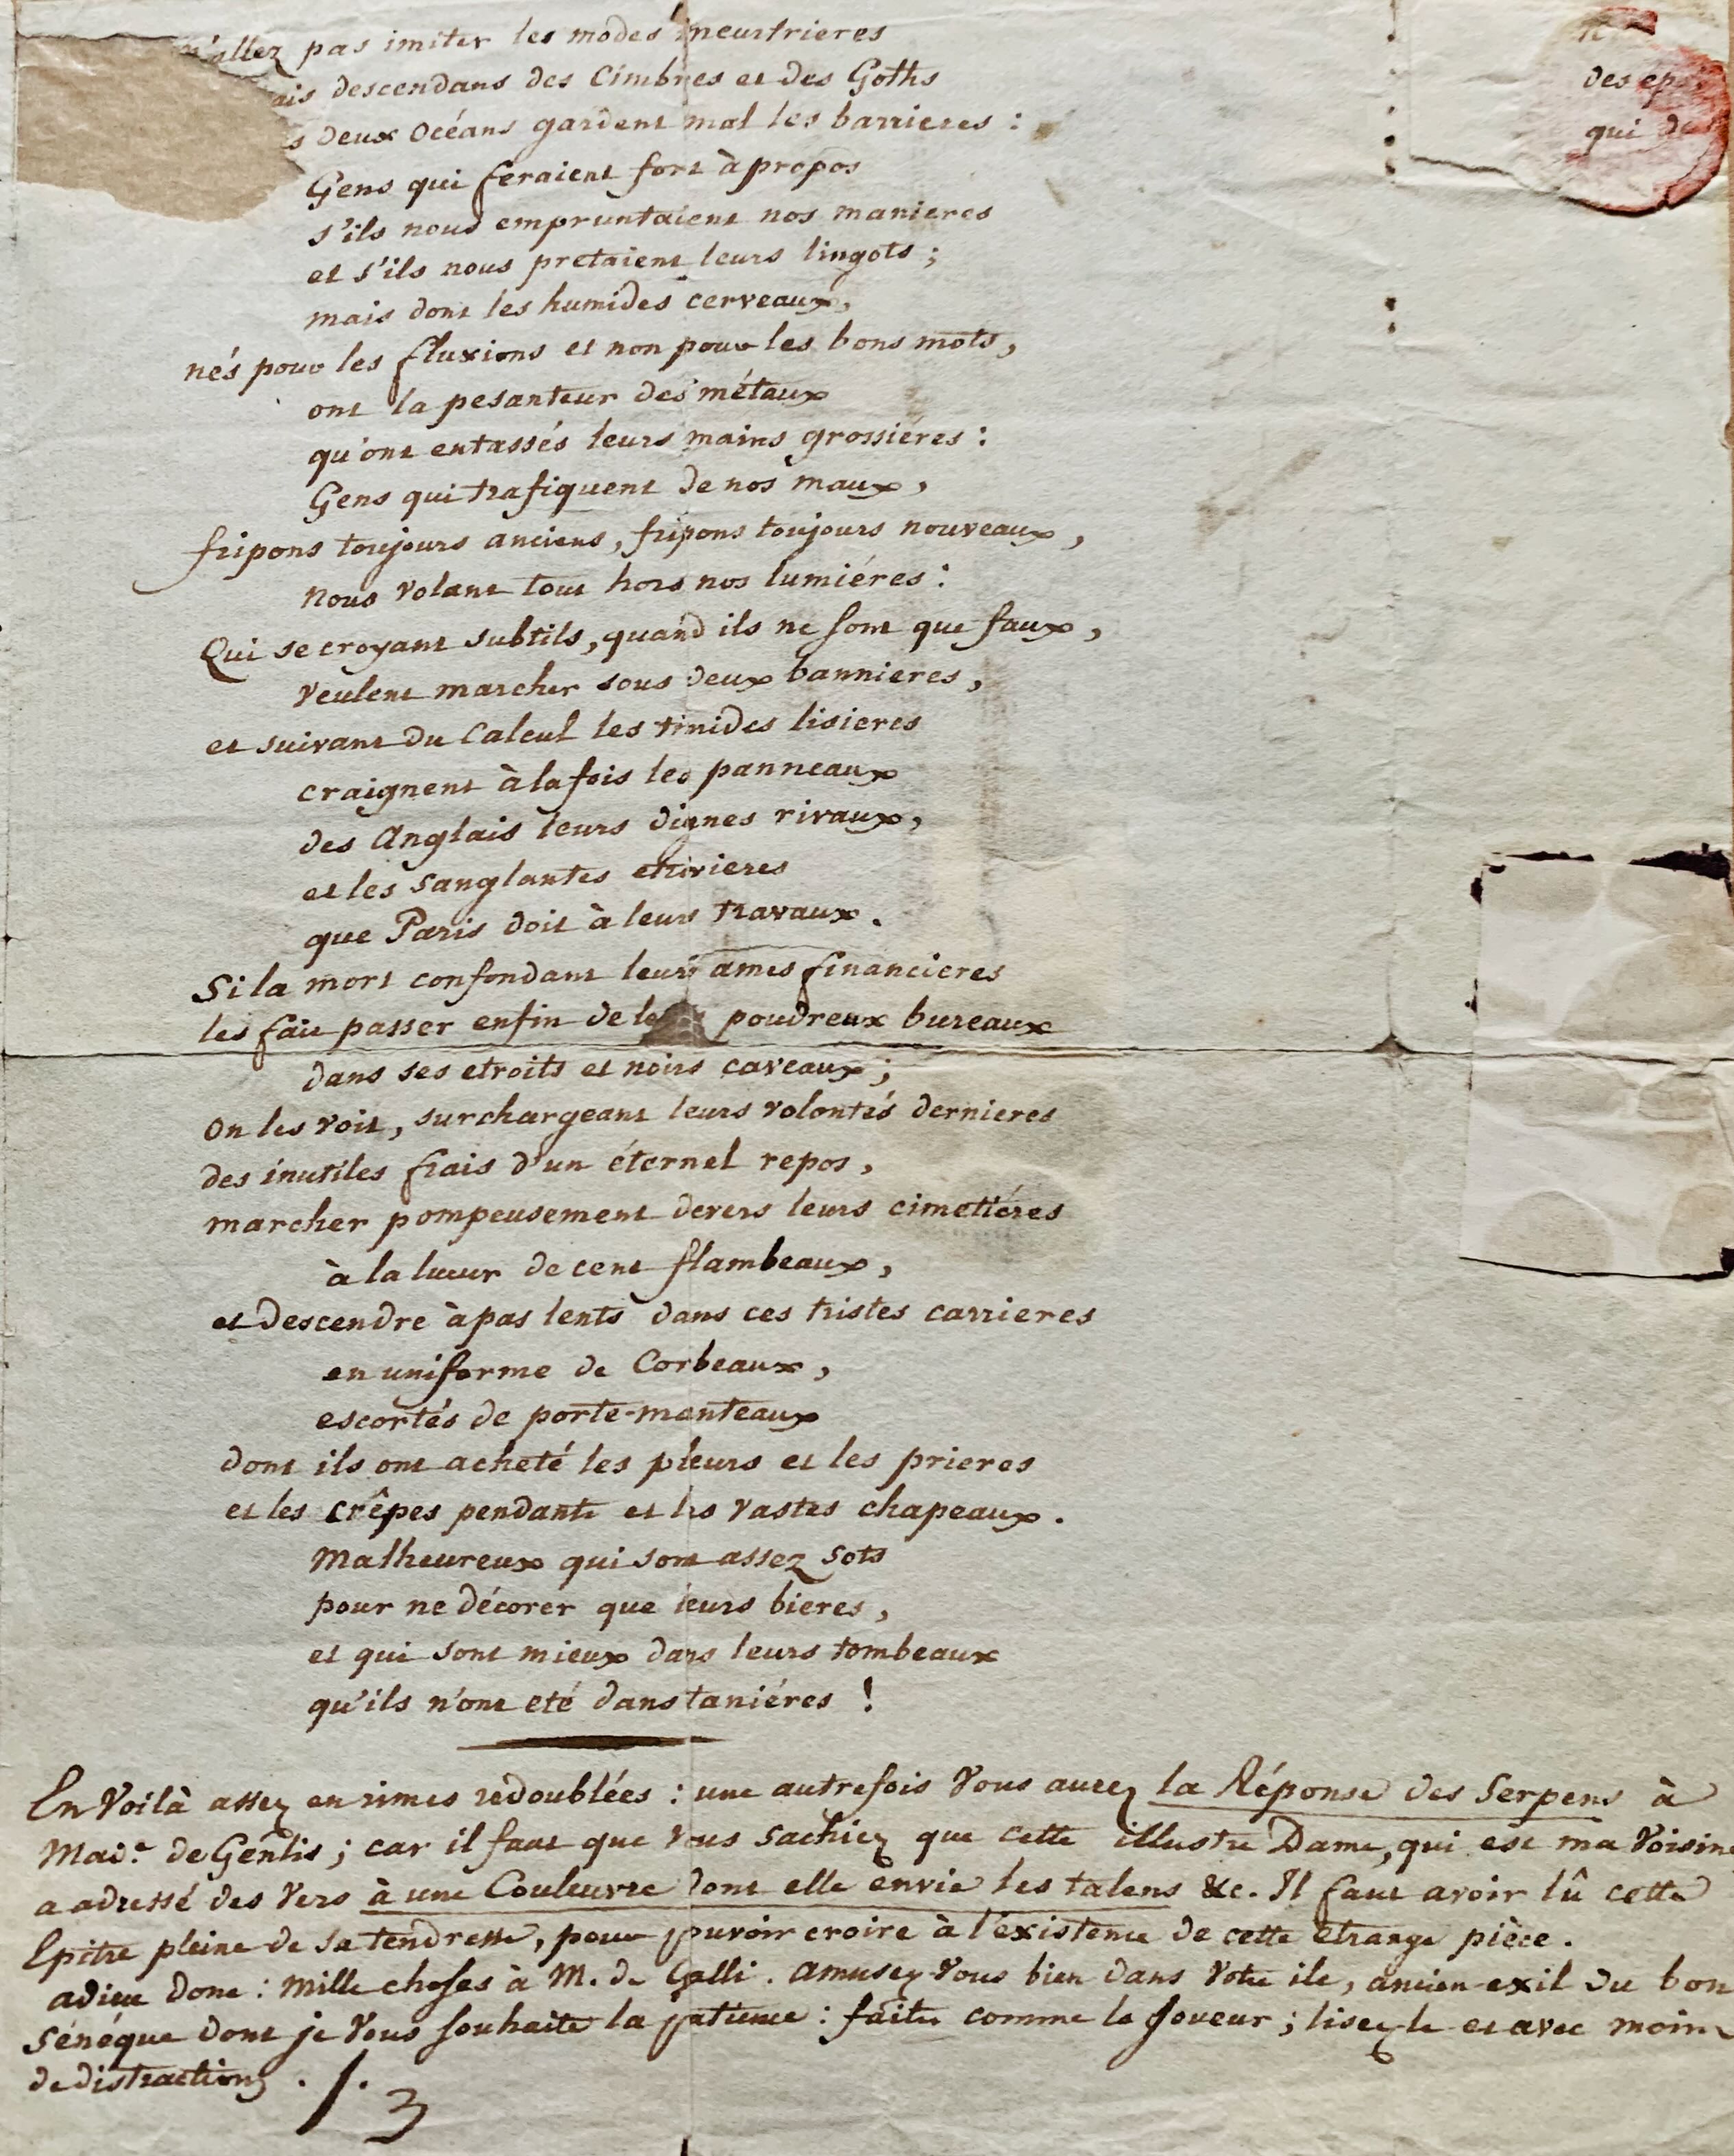 n'allez pas imiter les modes meurtrieres
ais descendans des Cimbres et des Goths
s deux Océans gardent mal les barrieres :
Gens qui feraient fort à propos
s'ils nous empruntaient nos manieres
et s'ils nous pretaient leurs lingots ;
mais dont les humides cerveaux,
nés pour les fluxions et non pour les bons mots,
ont la pesanteur des métaux
qu'ont entassés leurs mains grossiéres :
Gens qui trafiquent de nos maux,
fripons toujours anciens, fripons toujours nouveaux,
nous volant tout hors nos lumiéres :
Qui se croyant subtils, quand ils ne sont que faux,
veulent marcher sous deux bannieres,
et suivant du Calcul les timides lisieres
craignent à la fois les panneaux
des Anglais leurs dignes rivaux,
et les sanglantes etrivieres
que Paris doit à leurs travaux.
Si la mort confondant leurs ames financieres
les fait passer enfin de poudreux bureaux
dans ses etroits et noirs caveaux ;
on les voit, surchargeant leurs volontés dernieres
des inutiles frais d'un éternel repos,
marcher pompeusement devers leurs cimetiéres
à la lueur de cent flambeaux,
et descendre à pas lents dans ces tristes carrieres
en uniforme de Corbeaux,
escortés de porte-manteaux
dont ils ont acheté les pleurs et les prieres
et les crêpes pendants et les vastes chapeaux.
Malheureux qui sont assez sots
pour ne décorer que leurs bieres,
et qui sont mieux dans leurs tombeaux
qu'ils n'ont eté dans taniéres !
En Voilà assez en rimes redoublées : une autrefois Vous aurez la Réponse des Serpens à
Mad.e de Genlis ; car il faut que vous sachiez que cette illustre Dame, qui est ma Voisine
a adressé des Vers à une Couleuvre dont elle envie les talens &c. Il faut avoir lû cette
Epitre pleine de sa tendresse, pour pouvoir croire à l'existence de cette etrange pièce.
adieu donc : mille choses à M. de Galli. amusez-Vous bien dans Votre ile, ancien exil du bon
Sénéque dont je Vous souhaite la patience : faites comme le Joueur ; lisez-le et avec moins
de distractions.
des ep
qui de